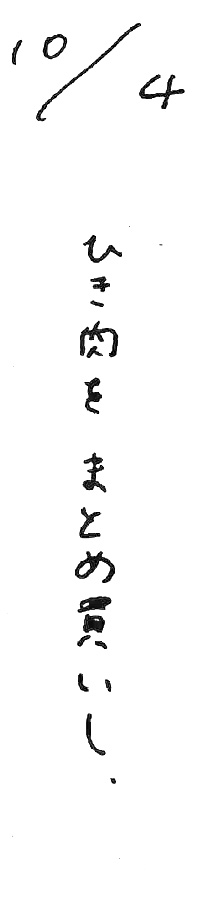 10/4
ひき肉をまとめ買いし、